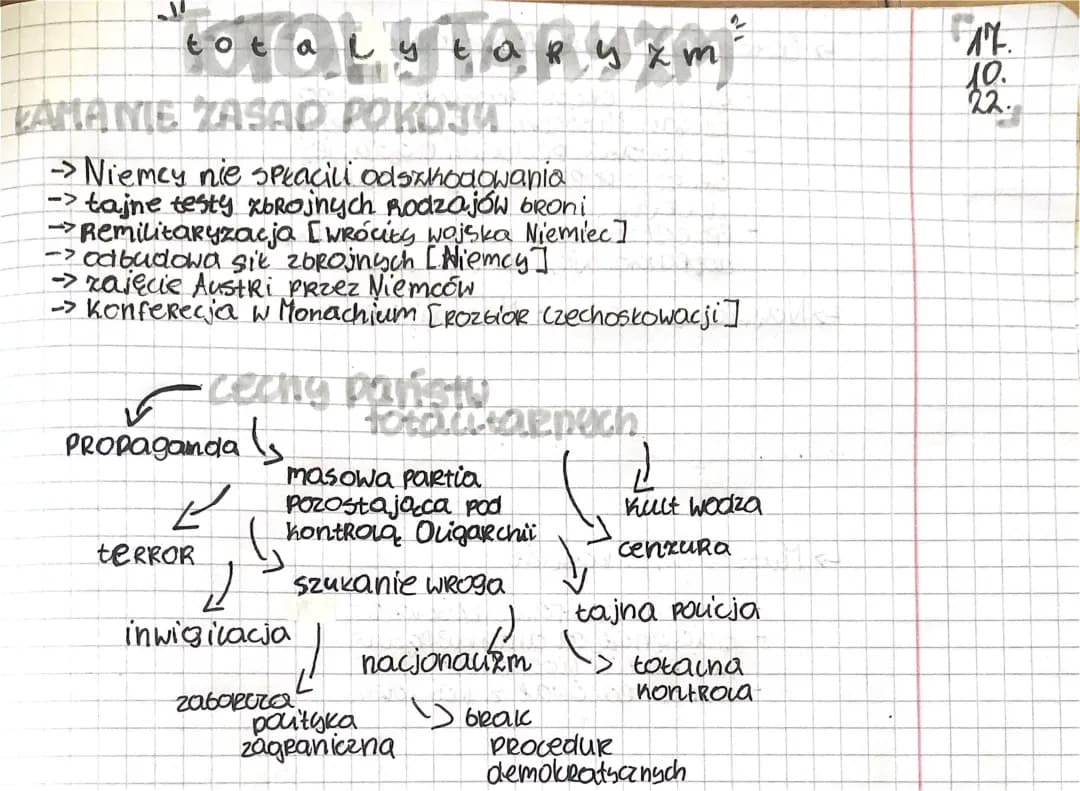 totalytaryzm
17.
10.
22.
ŁAMANIE ZASAD POKOJU
-> Niemcy nie spłacili odszkodowania
-> tajne testy zbrojnych Rodzajów broni
-> Remilitaryzacja [wróciły wojska Niemiec]
-> odbudowa sił zbrojnych [Niemcy]
-> zajęcie Austri przez Niemców
-> Konferecja w Monachium [rozbiór Czechosłowacji]
cechy państw
totalitarnych
PROPAGANDA
masowa partia
pozostająca pod
kontrolą Oligarchii
kult wodza
cenzura
terror
szukanie wroga
tajna policja
inwigilacja
nacjonalizm
totalna
kontrola
zaborcza
polityka
zagraniczna
brak
procedur
demokratycznych